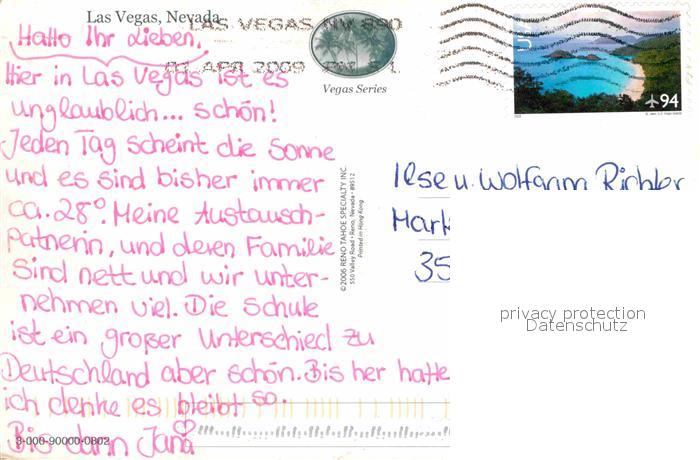 Las Vegas, Nevada
LAS VEGAS NV 890
01 APR 2009 PM
Vegas Series
94
Hallo Ihr Lieben,
Hier in Las Vegas ist es
unglaublich... schön!
Jeden Tag scheint die Sonne
und es sind bisher immer
ca. 28°. Meine Austausch-
patnerin, und deren Familie
sind nett und wir unter-
nehmen viel. Die Schule
ist ein großer Unterschied zu
Deutschland aber schön. Bis her hatte
ich denke es bleibt so.
Bis dann Jana
©2006 RENO TAHOE SPECIALTY INC.
550 Valley Road • Reno, Nevada • 89512
Printed in Hong Kong
Ilse u. Wolfanm Richter
Mark
35
privacy protection
Datenschutz
3-000-90000-0802